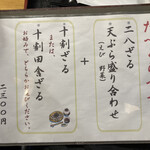 二八ざる
＋
天ぷら盛り合わせ
（えび 野菜）
十割ざる
または、
十割田舎ざる
お好みで、どちらかお選びください。
二三〇〇円